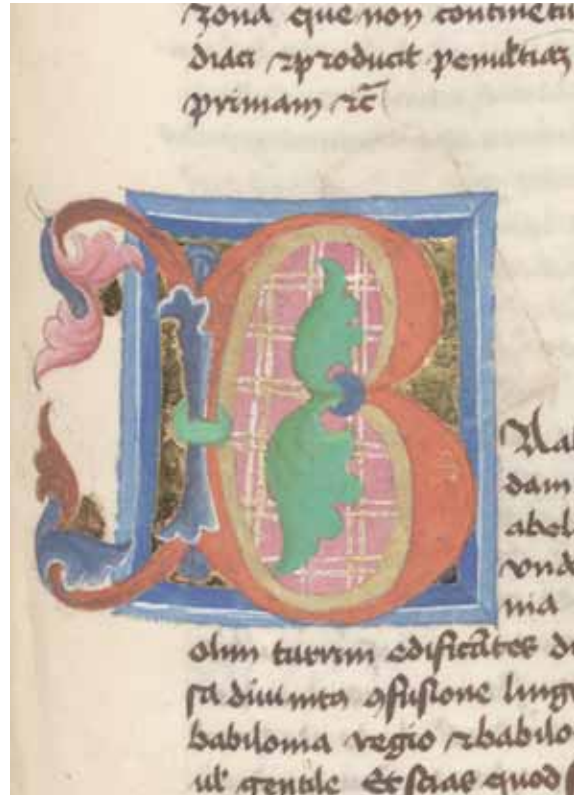 zona que non continetu
diaci ⁊ producit penultiaȝ
primam ⁊c̄
B
Aal
dam
abel
vnde
nia
olim turrim edificātes di
sa diuinita ꝯfusione lingu
babilonia regio ⁊ babilo
ul̓ gentile Et scias quod